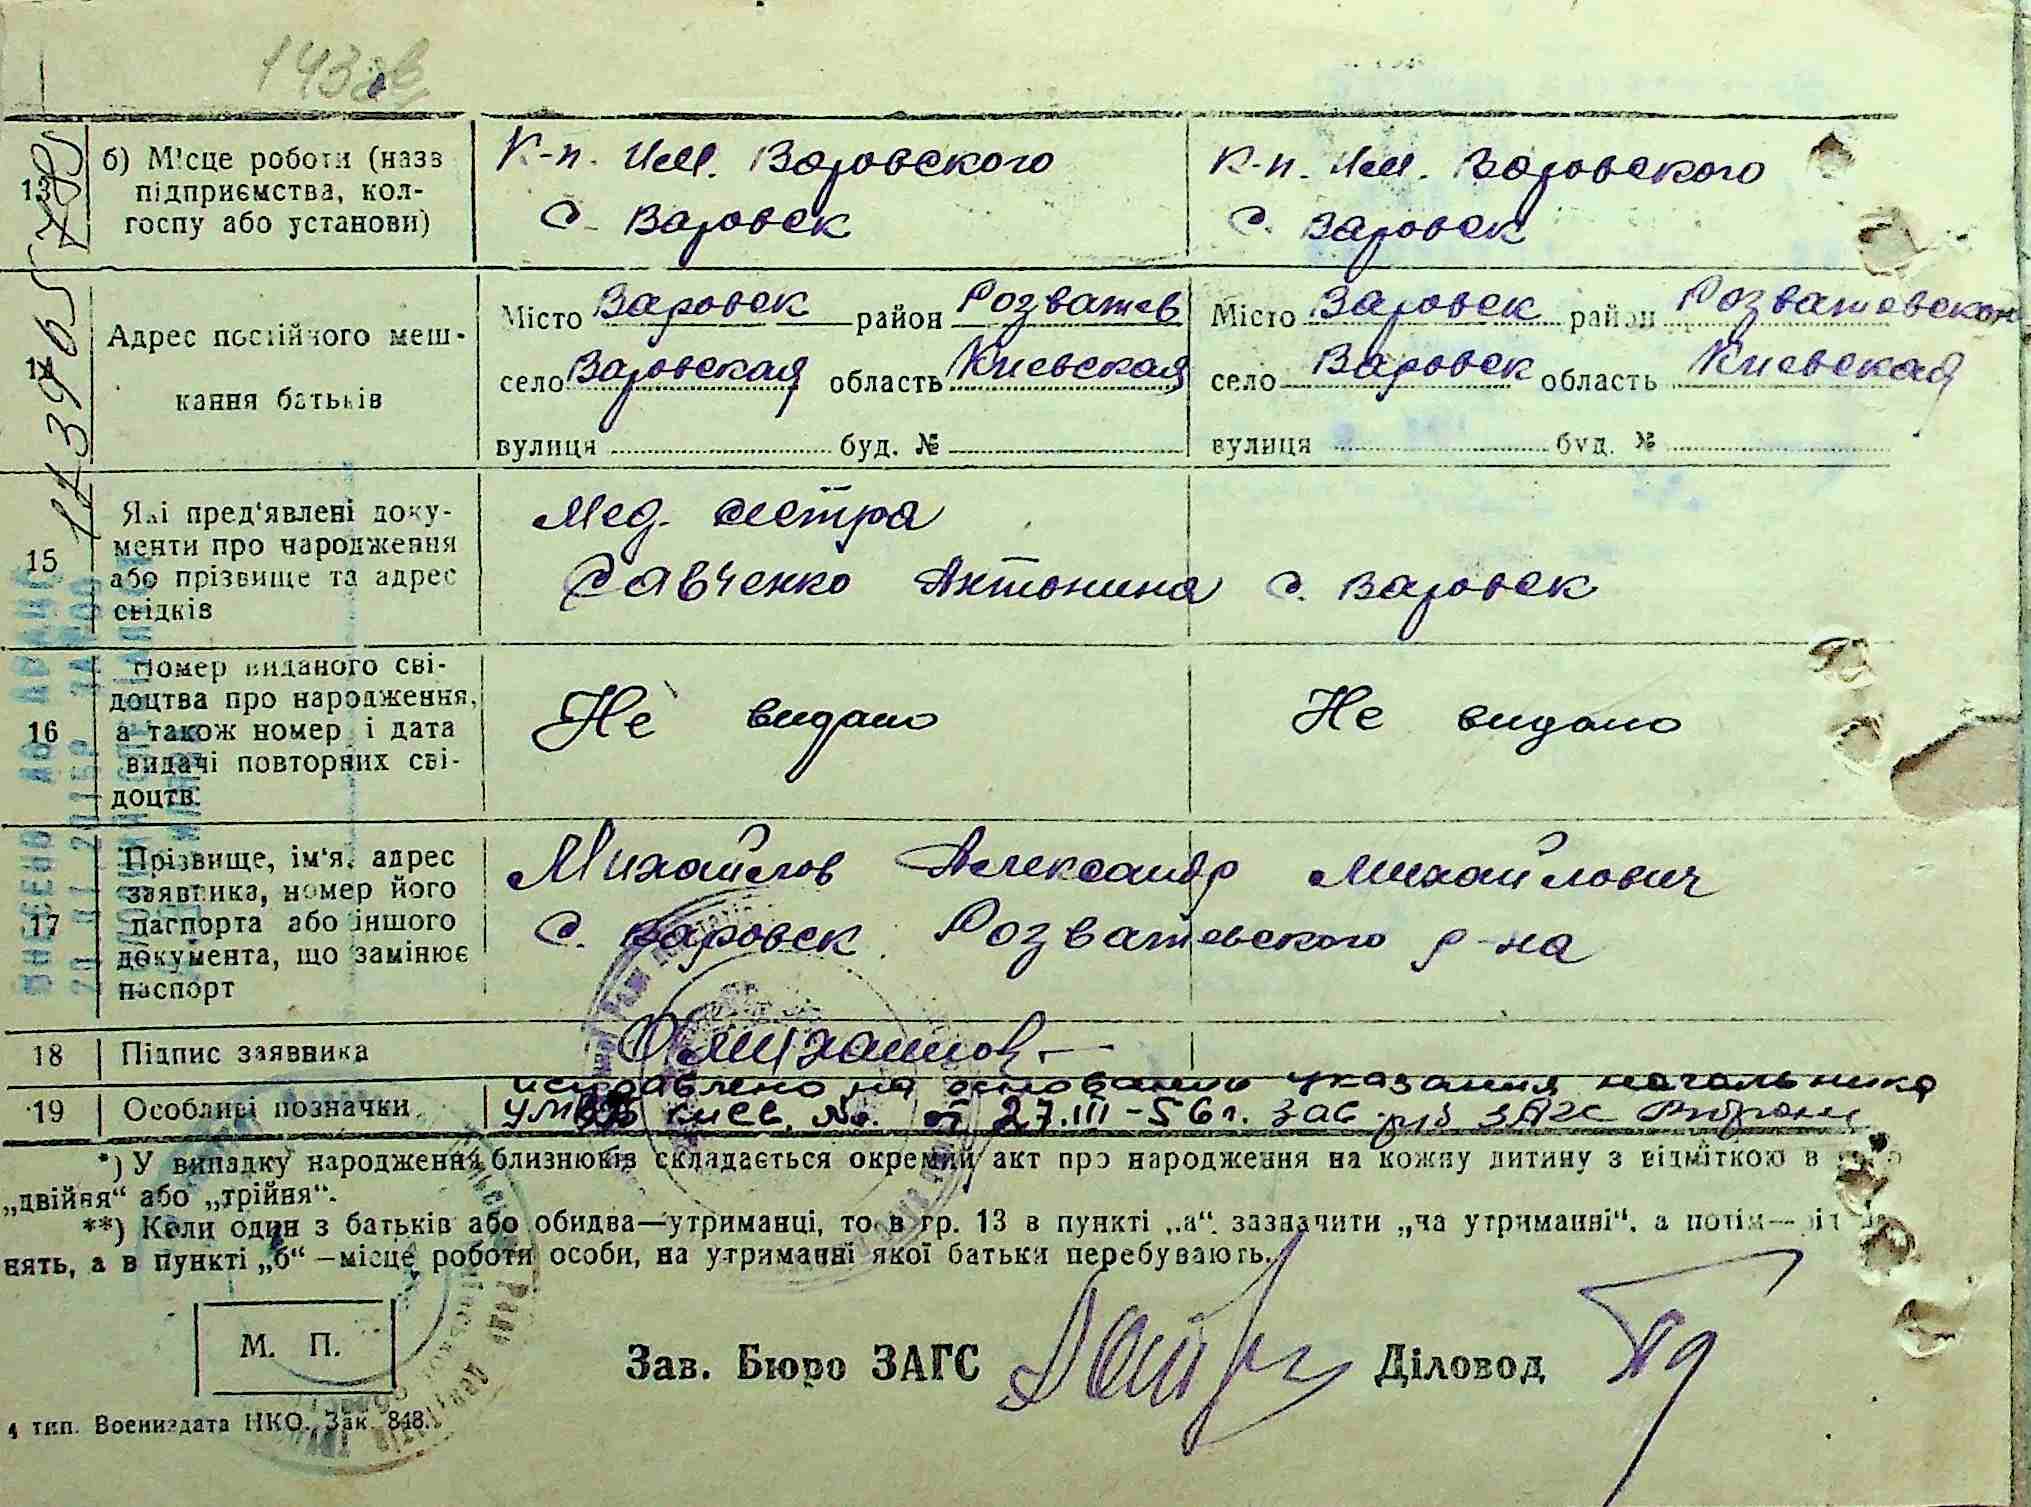 143 зв.
13
б) Місце роботи (назв
підприємства, кол-
госпу або установи)
К-п. им. Воровского
с. Варовск
К-п. им. Воровского
с. Варовск
14
Адрес постійного меш-
кання батьків
Місто Варовск район Розважев
село Варовская область Киевская
вулиця буд. №
Місто Варовск район Розважевский
село Варовск область Киевская
вулиця буд. №
15
Які пред'явлені доку-
менти про народження
або прізвище та адрес
свідків
Мед. сестра
Савченко Антонина с. Варовск
16
Номер виданого сві-
доцтва про народження,
а також номер і дата
видачі повторних сві-
доцтв.
Не видано
Не видано
17
Прізвище, ім'я, адрес
заявника, номер його
паспорта або іншого
документа, що замінює
паспорт
Михайлов Александр Михайлович
с. Варовск Розважевского р-на
18
Підпис заявника
Михайлов
19
Особливі позначки
исправлено на основании указания начальника
УМВД Киев. № от 27.III-56 г. Зав. р/б ЗАГС
*) У випадку народження близнюків складається окремий акт про народження на кожну дитину з відміткою в
„двійня“ або „трійня“.
**) Коли один з батьків або обидва—утриманці, то в гр. 13 в пункті „а“ зазначити „на утриманні“, а потім—
нять, а в пункті „б“ —місце роботи особи, на утриманні якої батьки перебувають.
М. П.
Зав. Бюро ЗАГС
Діловод
4 тип. Воениздата НКО. Зак. 848.